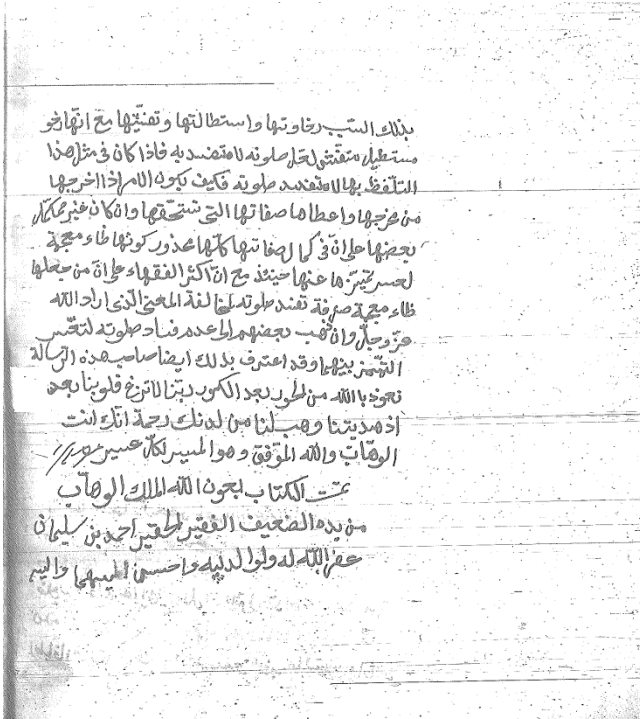 بذلك السبب رخاوتها واستطالتها وتفشّيها مع انّها رخو
مستطيل متفشّى لعلّ صلوته لا تفسد به فاذا كان فى مثل هذا
التلفّظ بها لا تفسد صلوته فكيف يكون الامر اذا اخرجها
من مخرجها واعطاها صفاتها التى تستحقّها وان كان غير
بعضها على انّ فى كمال صفاتها كلّها محذور كونها ظاء معجمة
لعسر تميّزها عنها حينئذ مع انّ اكثر الفقهاء على انّ من جعلها
ظاء معجمة صرفة تفسد صلوته لمخالفة المعنى الّذى اراد الله
عزّ وجلّ وان ذهب بعضهم الى عدم فساد صلوته لتعسّر
التميّز بينهما وقد اعترف بذلك ايضا صاحب هذه الرسالة
نعوذ بالله من الحور بعد الكور ربّنا لا تزغ قلوبنا بعد
اذ هديتنا وهب لنا من لدنك رحمة انّك انت
الوهّاب والله الموّفق وهو الميسر لكلّ عسير
تمت الكتاب بعون الله الملك الوهّاب
من يد الضعيف الفقير الحقير احمد بن سليمان
غفر الله له ولوالديه واحسن اليهما واليه